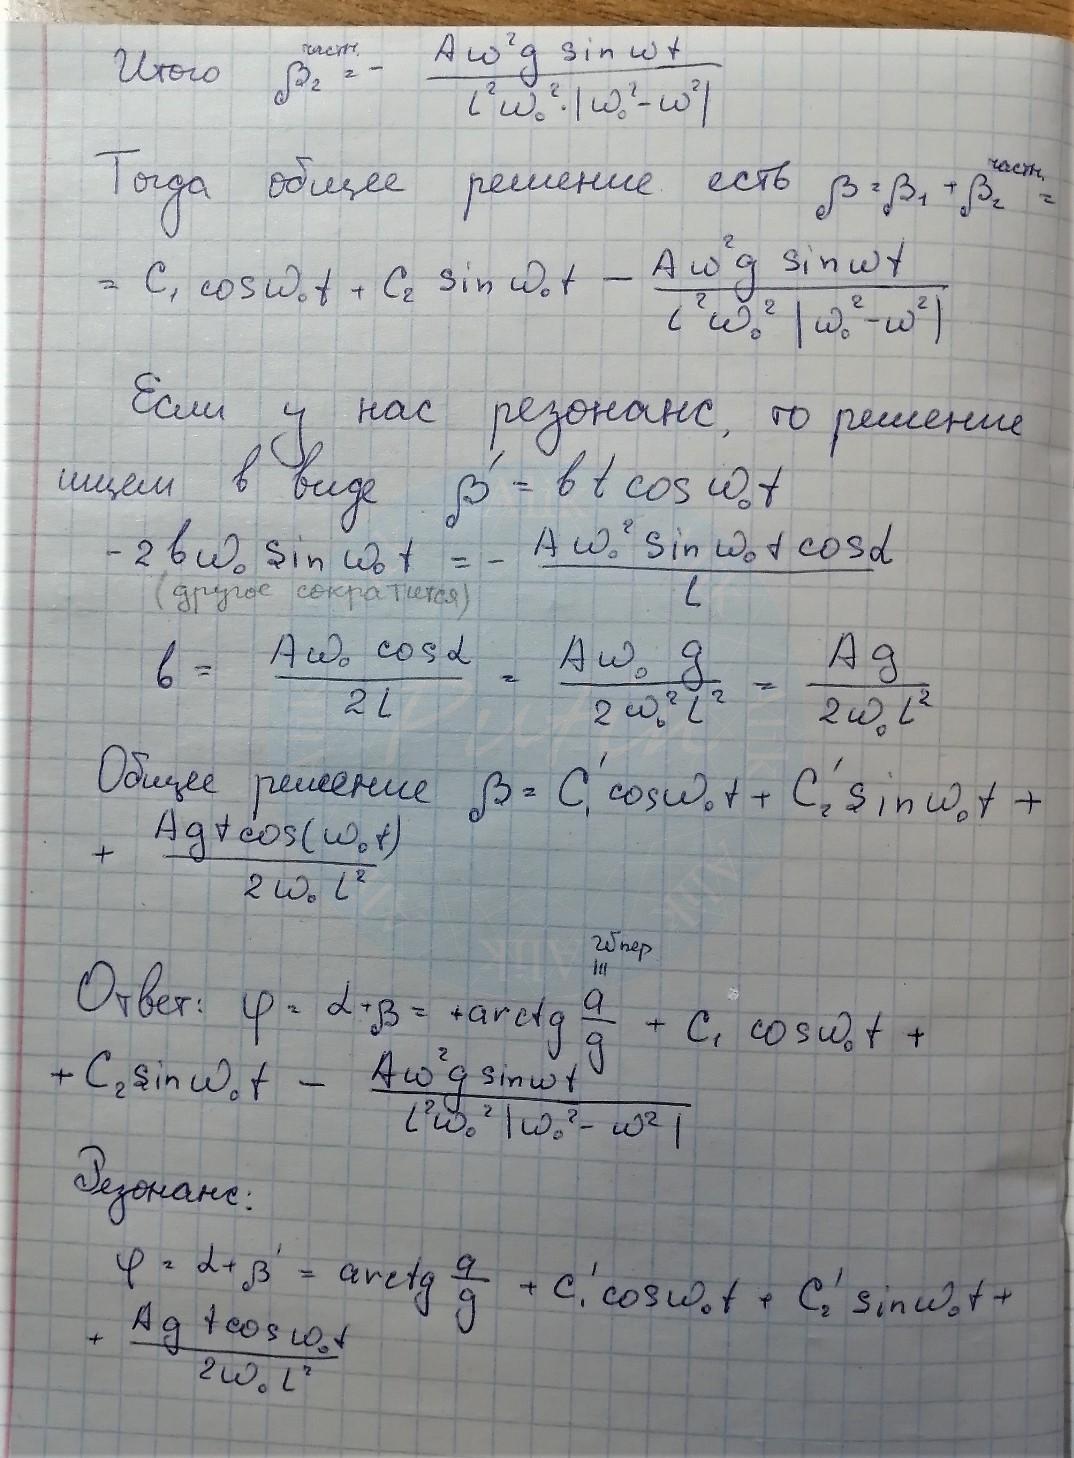 Итого β₂ частн. = - Aω²g sin ωt / L²ω₀²·|ω₀²-ω²|
Тогда общее решение есть β = β₁ + β₂ частн. =
= C₁ cos ω₀t + C₂ sin ω₀t - Aω²g sin ωt / L²ω₀² |ω₀²-ω²|
Если у нас резонанс, то решение
ищем в виде β' = b t cos ω₀t
-2bω₀ sin ω₀t = - Aω₀² sin ω₀t cos α / L
(другое сократится)
b = Aω₀ cos α / 2L = Aω₀ g / 2ω₀²L² = Ag / 2ω₀L²
Общее решение β = C₁' cos ω₀t + C₂' sin ω₀t +
+ Ag t cos(ω₀t) / 2ω₀L²
Ответ: φ = α + β = + arctg a/g + C₁ cos ω₀t +
+ C₂ sin ω₀t - Aω²g sin ωt / L²ω₀² |ω₀²-ω²|
Резонанс:
φ = α + β' = arctg a/g + C₁' cos ω₀t + C₂' sin ω₀t +
+ Ag t cos ω₀t / 2ω₀L²